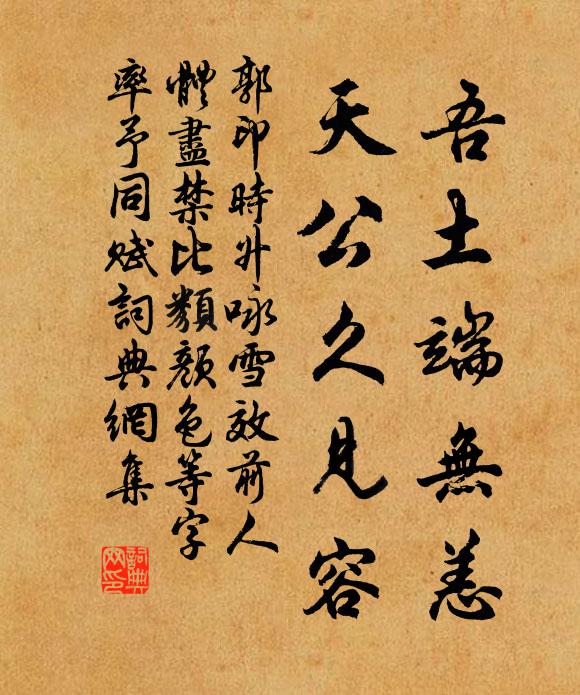 吾土端無恙
天公久見容
郭印時升咏雪效前人
體盡禁比類顏色等字
率予同賦詞典網集
詞典
网印